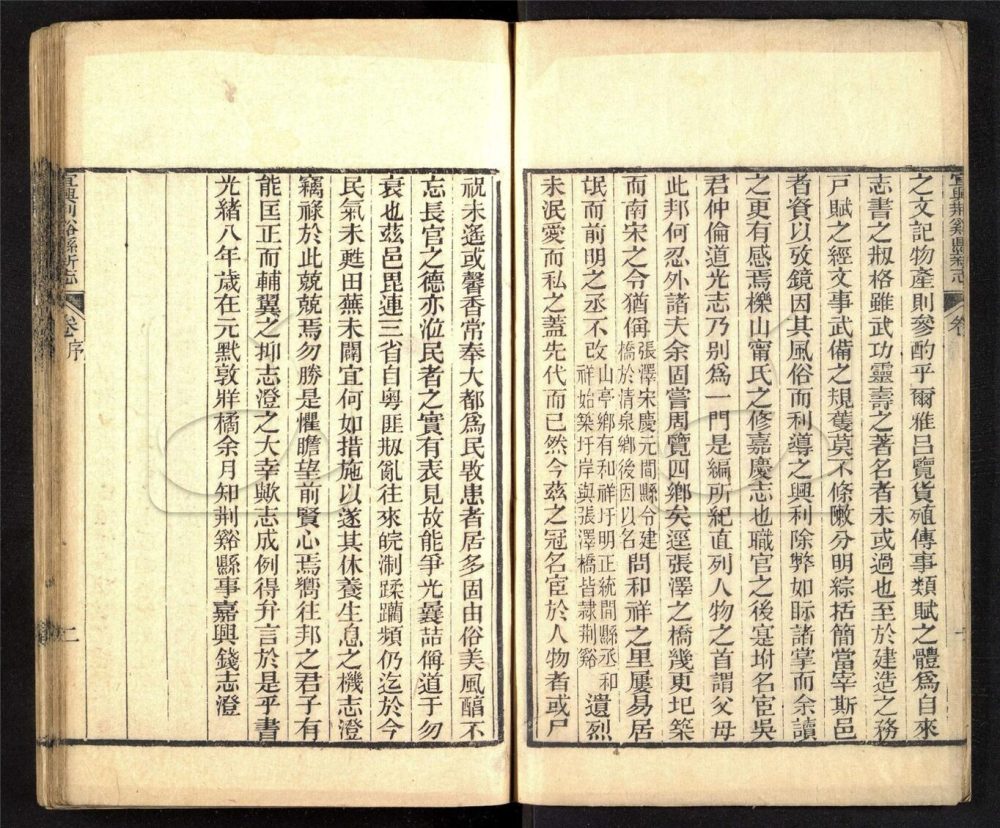 宜興荆谿縣新志 卷
之文記物產則參酌乎爾雅呂覽貨殖傳事類賦之體爲自來
志書之叛格雖武功靈壽之著名者未或過也至於建造之務
戸賦之經文事武備之規蒦莫不條敶分明綜括簡當宰斯邑
者資以攷鏡因其風俗而利導之興利除弊如眎諸掌而余讀
之更有感焉櫟山甯氏之修嘉慶志也職官之後寔坿名宦吳
君仲倫道光志乃别爲一門是編所紀直列人物之首謂父母
此邦何忍外諸夫余固嘗周覽四鄉矣逕張澤之橋幾更圮築
而南宋之令猶偁張澤宋慶元間縣令建
橋於清泉鄉後因以名問和祥之里屢易居
氓而前明之丞不改山亭鄉有和祥圩明正統間縣丞和
祥始築圩岸與張澤橋皆隸荆谿遺烈
未泯愛而私之蓋先代而已然今茲之冠名宦於人物者或尸
祝未遙或馨香常奉大都爲民敃患者居多固由俗美風醕不
忘長官之德亦涖民者之實有表見故能爭光曩喆偁道于勿
衰也茲邑毘連三省自粵匪叛亂往來皖淛蹂躪頻仍迄於今
民氣未甦田蕪未闢宜何如措施以遂其休養生息之機志澄
竊祿於此兢兢焉勿勝是懼瞻望前賢心焉嚮往邦之君子有
能匡正而輔翼之抑志澄之大幸歟志成例得弁言於是乎書
光緒八年歲在元黓敦牂橘余月知荆谿縣事嘉興錢志澄
宜興荆谿縣新志 卷序 二